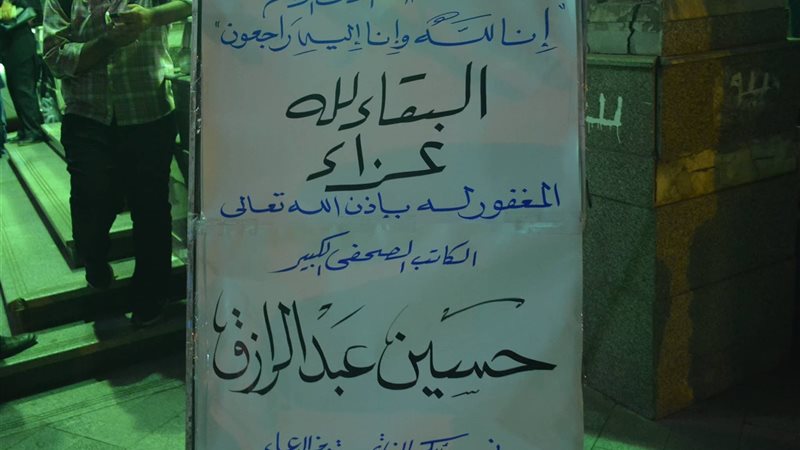 "إنا لله وإنا إليه راجعون"
البقاء لله
عزاء
المغفور له بإذن الله تعالى
الكاتب الصحفى الكبير
حسين عبد الرازق
لله
لله